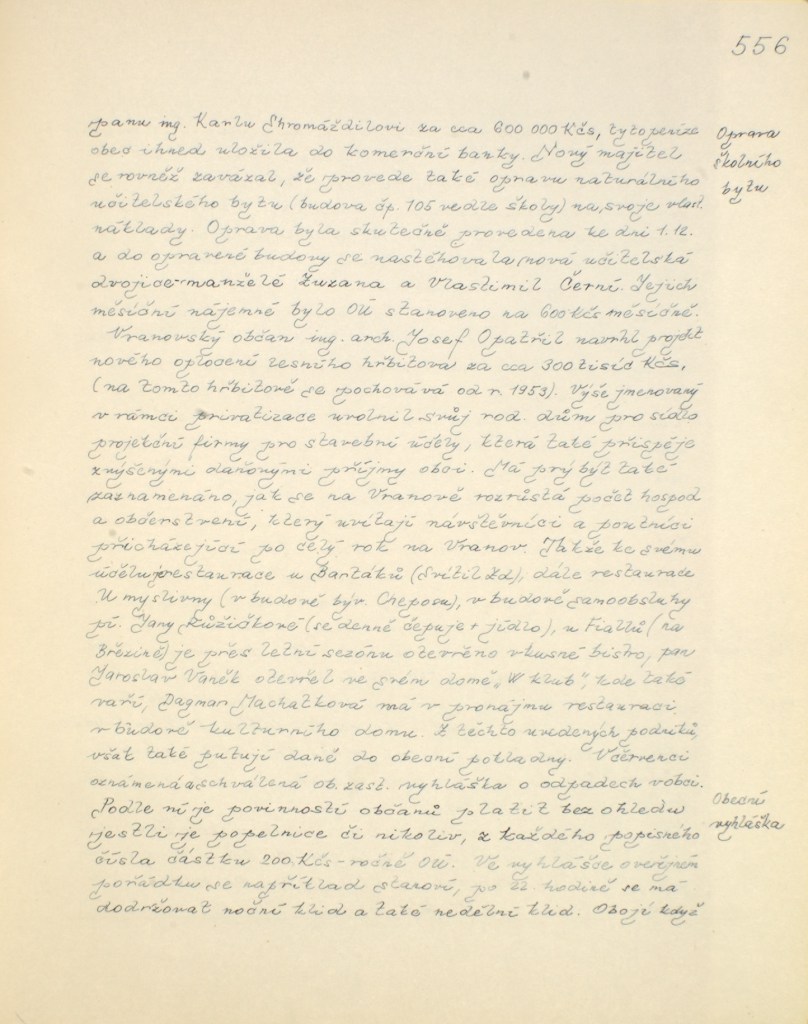 556
panu ing. Karlu Shromáždilovi za cca 600 000 Kčs, tyto peníze
Oprava
školního
bytu
obec ihned uložila do komerční banky. Nový majitel
se rovněž zavázal, že provede také opravu naturálního
učitelského bytu (budova čp. 105 vedle školy) na svoje vlast.
náklady. Oprava byla skutečně provedena ke dni 1.12.
a do opravené budovy se nastěhovala nová učitelská
dvojice-manželé Zuzana a Vlastimil Černí. Jejich
měsíční nájemné bylo OÚ stanoveno na 600 Kčs měsíčně.
Vranovský občan ing. arch. Josef Opatřil navrhl projekt
nového oplocení lesního hřbitova za cca 300 tisíc Kčs,
(na tomto hřbitově se pochovává od r. 1953). Výše jmenovaný
v rámci privatizace uvolnil svůj rod. dům pro sídlo
projekční firmy pro stavební účely, která také přispěje
zvýšenými daňovými příjmy obci. Má prý být také
zaznamenáno, jak se na Vranově rozrůstá počet hospod
a občerstvení, který uvítají návštěvníci a poutníci
přicházející po celý rok na Vranov. Takže ke svému
účelu je restaurace u Bartáků (Svítil Zd), dále restaurace
U myslivny (v budově býv. Cheposu), v budově samoobsluhy
pí. Jany Růžičkové (se denně čepuje + jídlo), u Fiallů (na
Březině) je přes letní sezónu otevřeno vkusné bistro, pan
Jaroslav Vaněk otevřel ve svém domě „W klub", kde také
vaří, Dagmar Machatková má v pronájmu restauraci
v budově kulturního domu. Z těchto uvedených podniků,
však také putují daně do obecní pokladny. V červenci
oznámena a schválená ob. zast. vyhláška o odpadech v obci.
Obecní
vyhláška
Podle ní je povinností občanů platit bez ohledu
jestli je popelnice či nikoliv, z každého popisného
čísla částku 200 Kčs - ročně OÚ. Ve vyhlášce o veřejném
pořádku se například stanoví, po 22. hodině se má
dodržovat noční klid a také nedělní klid. Obojí když